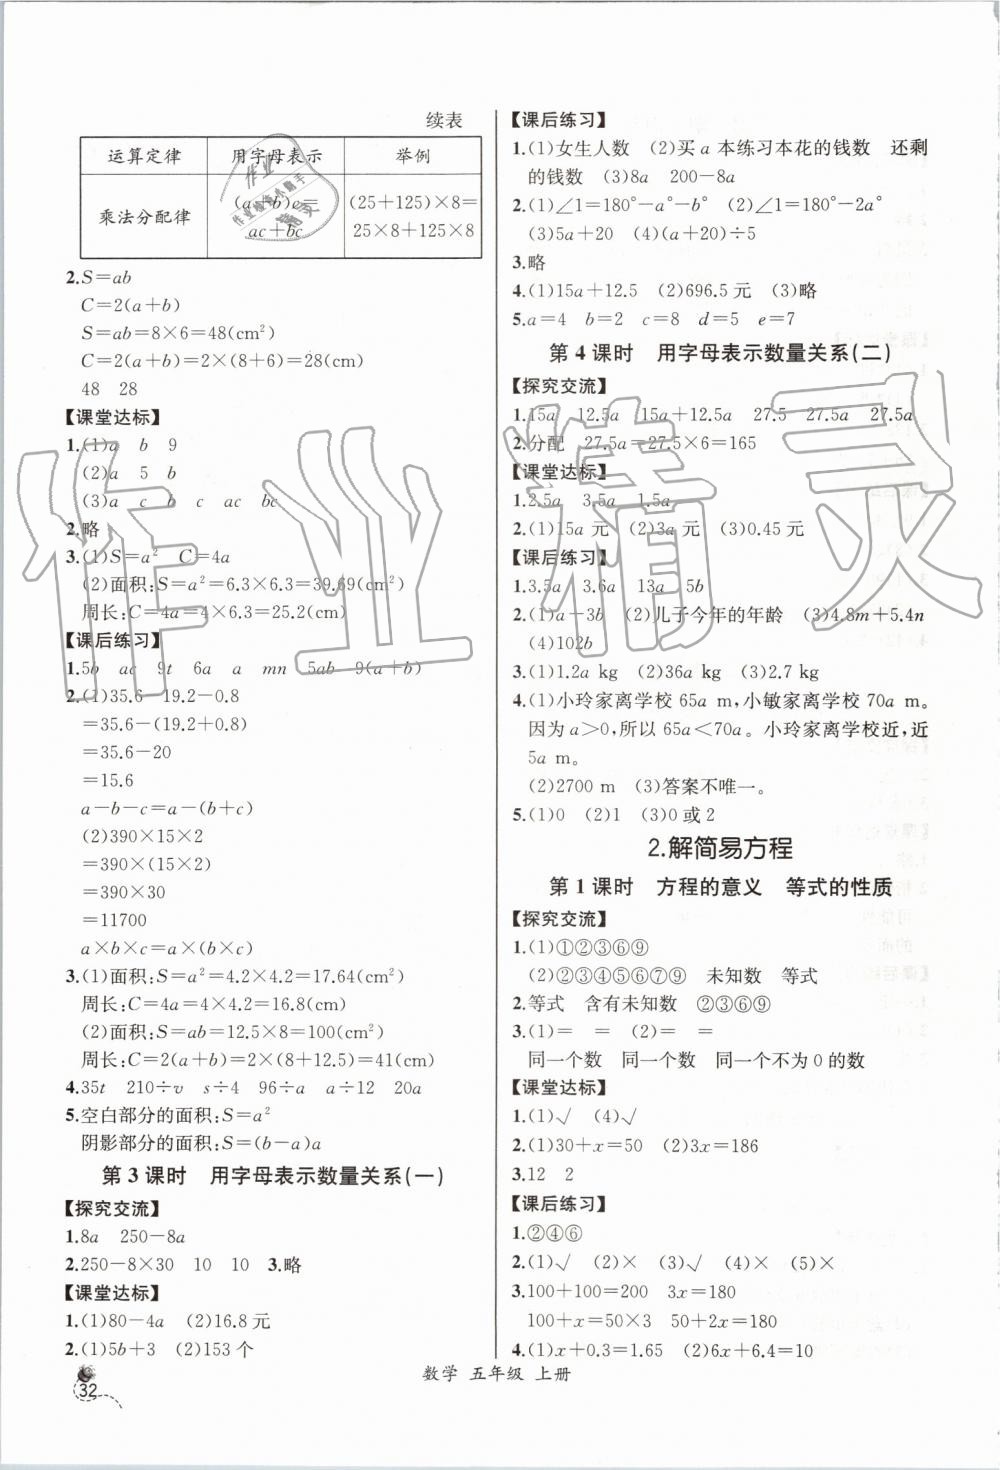 续表
运算定律 用字母表示 举例
乘法分配律 (a+b)c=ac+bc (25+125)×8=25×8+125×8
2.S=ab
C=2(a+b)
S=ab=8×6=48(cm²)
C=2(a+b)=2×(8+6)=28(cm)
48 28
【课堂达标】
1.(1)a b 9
(2)a 5 b
(3)a c b c ac bc
2.略
3.(1)S=a² C=4a
(2)面积:S=a²=6.3×6.3=39.69(cm²)
周长:C=4a=4×6.3=25.2(cm)
【课后练习】
1.5b ac 9t 6a a mn 5ab 9(a+b)
2.(1)35.6-19.2-0.8
=35.6-(19.2+0.8)
=35.6-20
=15.6
a-b-c=a-(b+c)
(2)390×15×2
=390×(15×2)
=390×30
=11700
a×b×c=a×(b×c)
3.(1)面积:S=a²=4.2×4.2=17.64(cm²)
周长:C=4a=4×4.2=16.8(cm)
(2)面积:S=ab=12.5×8=100(cm²)
周长:C=2(a+b)=2×(8+12.5)=41(cm)
4.35t 210÷v s÷4 96÷a a÷12 20a
5.空白部分的面积:S=a²
阴影部分的面积:S=(b-a)a
第3课时 用字母表示数量关系(一)
【探究交流】
1.8a 250-8a
2.250-8×30 10 10 3.略
【课堂达标】
1.(1)80-4a (2)16.8元
2.(1)5b+3 (2)153个
【课后练习】
1.(1)女生人数 (2)买a本练习本花的钱数 还剩
的钱数 (3)8a 200-8a
2.(1)∠1=180°-a°-b° (2)∠1=180°-2a°
(3)5a+20 (4)(a+20)÷5
3.略
4.(1)15a+12.5 (2)696.5元 (3)略
5.a=4 b=2 c=8 d=5 e=7
第4课时 用字母表示数量关系(二)
【探究交流】
1.15a 12.5a 15a+12.5a 27.5 27.5a 27.5a
2.分配 27.5a=27.5×6=165
【课堂达标】
1.2.5a 3.5a 1.5a
2.(1)15a元 (2)3a元 (3)0.45元
【课后练习】
1.3.5a 3.6a 13a 5b
2.(1)a+3b (2)儿子今年的年龄 (3)4.8m+5.4n
(4)102b
3.(1)1.2a kg (2)36a kg (3)2.7 kg
4.(1)小玲家离学校65a m,小敏家离学校70a m。
因为a>0,所以65a<70a。小玲家离学校近,近
5a m。
(2)2700 m (3)答案不唯一。
5.(1)0 (2)1 (3)0或2
2.解简易方程
第1课时 方程的意义 等式的性质
【探究交流】
1.(1)①②③⑥⑨
(2)②③④⑤⑥⑦⑨ 未知数 等式
2.等式 含有未知数 ②③⑥⑨
3.(1)= = (2)= =
同一个数 同一个数 同一个不为0的数
【课堂达标】
1.(1)√ (4)√
2.(1)30+x=50 (2)3x=186
3.12 2
【课后练习】
1.②④⑥
2.(1)√ (2)× (3)√ (4)× (5)×
3.100+100=200 3x=180
100+x=50×3 2x+50=180
4.(1)x+0.3=1.65 (2)6x+6.4=10
数学 五年级 上册
32
作业精灵